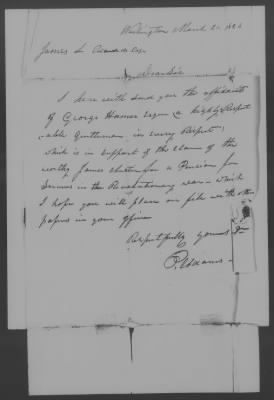 Washington March 2
James L Edwards Esqr
I here with send you the affidavit
of George Hamer Esqr a highly Respect
able Gentleman in every Respect,
which is in support of the claim of the
worthy James for a Pension for
Services in the Revolutionary war - which
I hope you will place on file with the other
papers in your office
Respectfully Yours &c